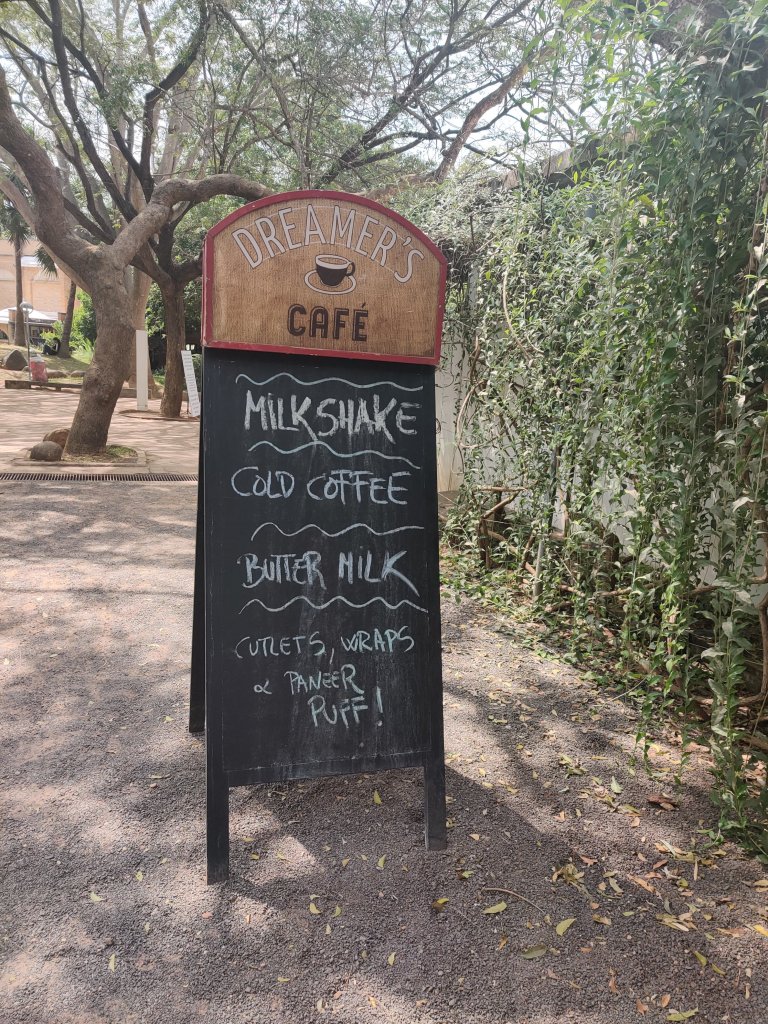 DREAMER'S
CAFÉ
MILKSHAKE
COLD COFFEE
BUTTER MILK
CUTLETS, WRAPS
& PANEER
PUFF!